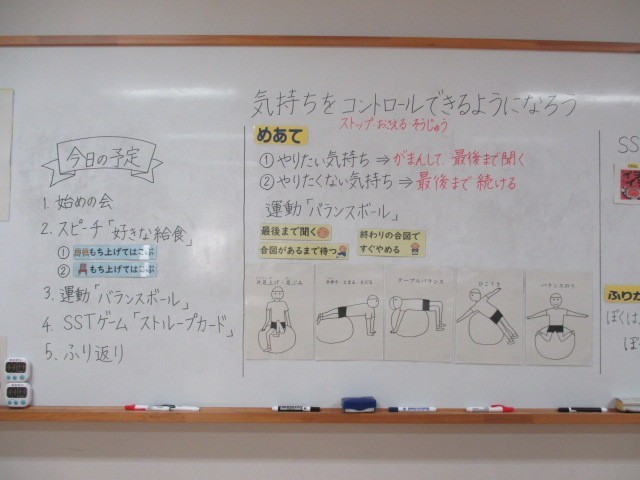 今日の予定
1. 始めの会
2. スピーチ「好きな給食」
① もち上げてはこぶ
② もち上げてはこぶ
3. 運動「バランスボール」
4. SSTゲーム「ストループカード」
5. ふり返り
気持ちを コントロールできるようになろう
ストップ・おさえる そうじゅう
めあて
①やりたい気持ち ⇒ がまんして 最後まで聞く
②やりたくない気持ち ⇒ 最後まで 続ける
運動「バランスボール」
最後まで聞く
合図があるまで待つ
終わりの合図で
すぐやめる
テーブルバランス
ひこうき
バランスのり
SS
ふりか
ぼくは
ぼ